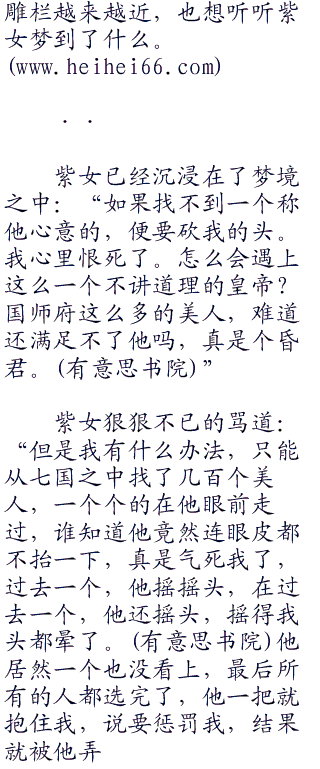 雕栏越来越近，也想听听紫
女梦到了什么。
(www.heihei66.com)
．．
紫女已经沉浸在了梦境
之中：“如果找不到一个称
他心意的，便要砍我的头。
我心里恨死了。怎么会遇上
这么一个不讲道理的皇帝？
国师府这么多的美人，难道
还满足不了他吗，真是个昏
君。(有意思书院)”
紫女狠狠不已的骂道：
“但是我有什么办法，只能
从七国之中找了几百个美
人，一个个的在他眼前走
过，谁知道他竟然连眼皮都
不抬一下，真是气死我了，
过去一个，他摇摇头，在过
去一个，他还摇头，摇得我
头都晕了。(有意思书院)他
居然一个也没看上，最后所
有的人都选完了，他一把就
抱住我，说要惩罚我，结果
就被他弄